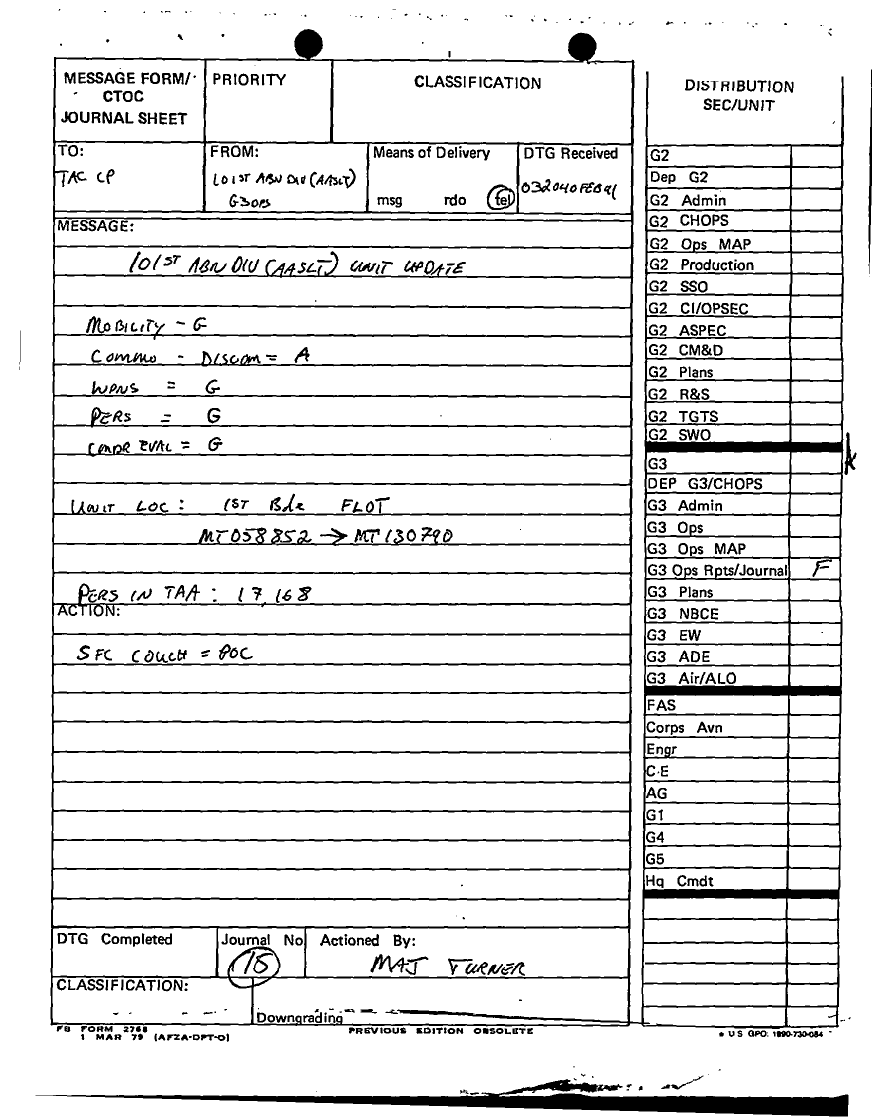 MESSAGE FORM/ CTOC JOURNAL SHEET
PRIORITY
CLASSIFICATION
TO:
TAC CP
FROM:
101ST ABN DIV (AASLT)
G3 OPS
Means of Delivery
msg rdo tel
DTG Received
032040FEB91
MESSAGE:
101ST ABN DIV (AASLT) UNIT UPDATE
MOBILITY - G
COMMO - DISCOM = A
WPNS = G
PERS = G
CMDR EVAL = G
UNIT LOC: 1ST Bde FLOT
MT058852 → MT130790
PERS IN TAA: 17,168
ACTION:
SFC COUCH = POC
DTG Completed
Journal No
15
Actioned By:
MAJ TURNER
CLASSIFICATION:
Downgrading
FB FORM 2768
1 MAR 79 (AFZA-DPT-O)
PREVIOUS EDITION OBSOLETE
★ U S GPO: 1990-730-084
DISTRIBUTION
SEC/UNIT
G2
Dep G2
G2 Admin
G2 CHOPS
G2 Ops MAP
G2 Production
G2 SSO
G2 CI/OPSEC
G2 ASPEC
G2 CM&D
G2 Plans
G2 R&S
G2 TGTS
G2 SWO
G3
DEP G3/CHOPS
G3 Admin
G3 Ops
G3 Ops MAP
G3 Ops Rpts/Journal F
G3 Plans
G3 NBCE
G3 EW
G3 ADE
G3 Air/ALO
FAS
Corps Avn
Engr
C-E
AG
G1
G4
G5
Hq Cmdt